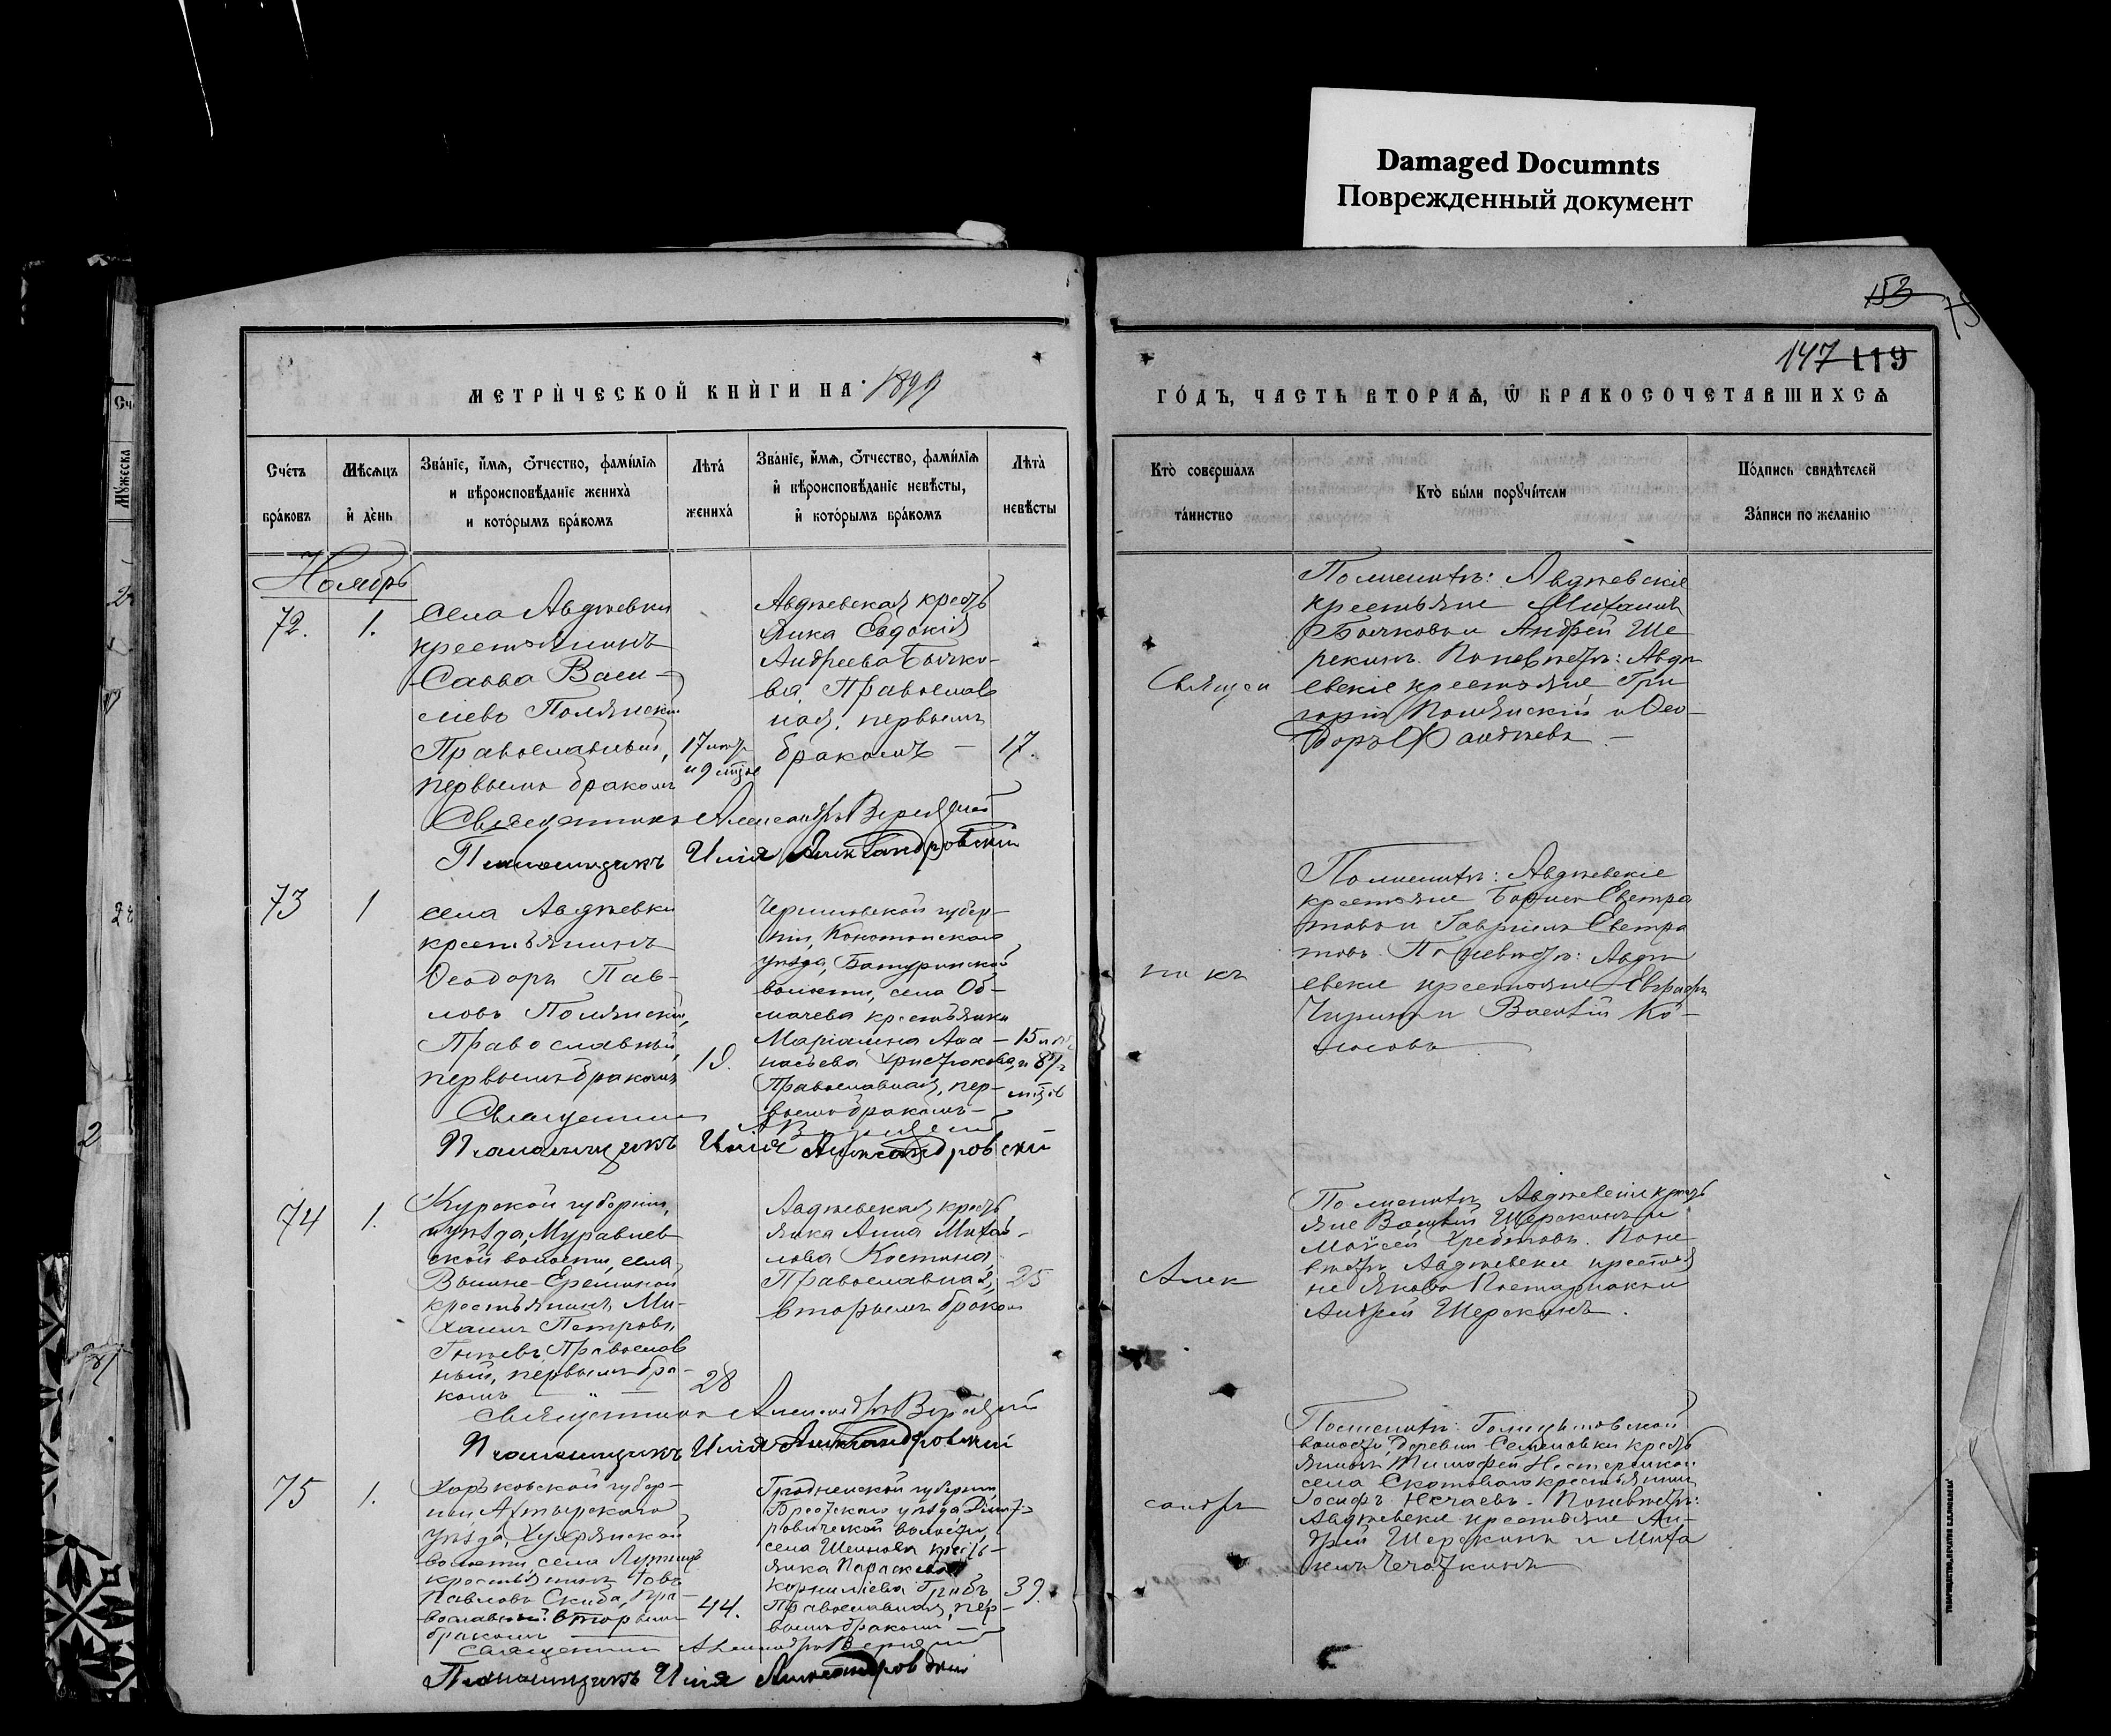 Damaged Documnts
Поврежденный документ
153
147 119
МЕТРИЧЕСКОЙ КНИГИ НА 1899
ГОДЪ, ЧАСТЬ ВТОРАѦ, Ѿ БРАКОСОЧЕТАВШИХСѦ
Счетъ браковъ
Мѣсѧцъ и день
Званіе, имѧ, отчество, фамиліѧ
и вѣроисповѣданіе жениха
и которымъ бракомъ
Лѣта жениха
Званіе, имѧ, отчество, фамиліѧ
и вѣроисповѣданіе невѣсты,
и которымъ бракомъ
Лѣта невѣсты
Кто совершалъ таинство
Кто были поручители
Подпись свидѣтелей
Записи по желанію
Ноябрь
72.
1.
села Авдѣевки
крестьянинъ
Савва Васи-
ліевъ Полянскій
Православный,
первымъ бракомъ
17 лѣтъ
и 9 мѣс
Авдѣевская кресть
янка Евдокія
Андреева Бычко-
ва, Православ
ная, первымъ
бракомъ —
17.
Священникъ Александръ Верецкій
Псаломщикъ Илія Александровскій
Священ
По женихѣ: Авдѣевскіе
крестьяне Михаилъ
Бычковъ и Андрей Ше
рекинъ. По невѣстѣ: Авдѣ
евскіе крестьяне Гри
горій Полянскій и Ѳео-
доръ Фандѣевъ. —
73
1
села Авдѣевки
крестьянинъ
Ѳеодоръ Пав-
ловъ Полянскій,
Православный,
первымъ бракомъ
19.
Черниговской губер-
ніи, Конотопскаго
уѣзда, Батуринской
волости, села Об-
мачева крестьянка
Маріамна Аѳа-
насьева
Православная, пер-
вымъ бракомъ —
15 лѣтъ
и 8½
мѣс
Священникъ
Псаломщикъ Илія Александровскій
никъ
По женихѣ: Авдѣевскіе
крестьяне Борисъ Евстра
товъ и Гавріилъ Евстра
товъ. По невѣстѣ: Авдѣ
евскіе крестьяне Евграфъ
Чиринъ и Василій Ко-
лосовъ
74
1.
Курской губерніи,
и уѣзда, Муравлев
ской волости, села
Вышне-Ереминой
крестьянинъ Ми-
хаилъ Петровъ
Православ
ный, первымъ бра-
комъ — " —
28
Авдѣевская кресть
янка Анна Михай-
лова Костина,
Православная,
вторымъ бракомъ
25
Священникъ Александръ Верецкій
Псаломщикъ Илія Александровскій
Алек
По женихѣ Авдѣевскіе кресть
яне Василій Шерекинъ и
Моѵсей Хребтовъ. По не
вѣстѣ Авдѣевскіе крестья
не Яковъ и
Андрей Шерекинъ.
75
1.
Харьковской губер-
ніи, Ахтырскаго
уѣзда, Хухрянской
волости, села
крестьянинъ Іовъ
Павловъ Скиба, Пра-
вославный вторымъ
бракомъ
44.
Гродненской губерніи
Брестскаго уѣзда
волости,
села кресть-
янка Параскева
Корниліева Грибъ
Православная, пер-
вымъ бракомъ —
39.
Священникъ Александръ Верецкій
Псаломщикъ Илія Александровскій
сандръ
По женихѣ: Голицыновской
волости, деревни Семеновки кресть
янинъ Тимофей
села Скотоватаго крестьянинъ
Іосифъ Нечаевъ. По невѣстѣ:
Авдѣевскіе крестьяне Ан-
дрей Шерекинъ и Миха
илъ Чечоткинъ